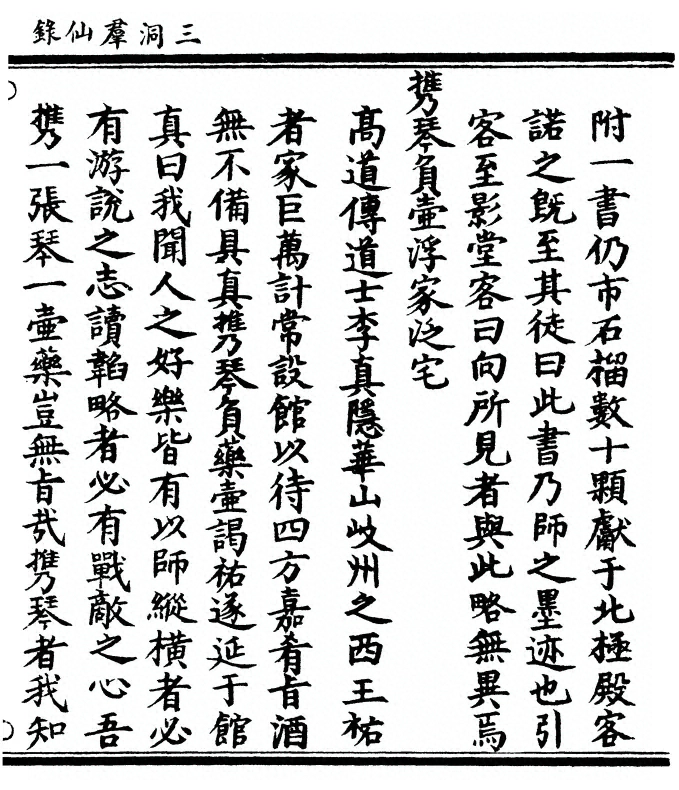 三洞羣仙錄
附一書仍市石榴數十顆獻于北極殿客
諾之旣至其徒曰此書乃師之墨迹也引
客至影堂客曰向所見者與此略無異焉
携琴負壷浮家泛宅
髙道傳道士李真隱華山岐州之西王祐
者家巨萬計常設館以待四方嘉肴旨酒
無不備具真携琴負藥壷謁祐遂延于館
真曰我聞人之好樂皆有以師縱橫者必
有游說之志讀韜略者必有戰敵之心吾
携一張琴一壷藥豈無旨㢤携琴者我知